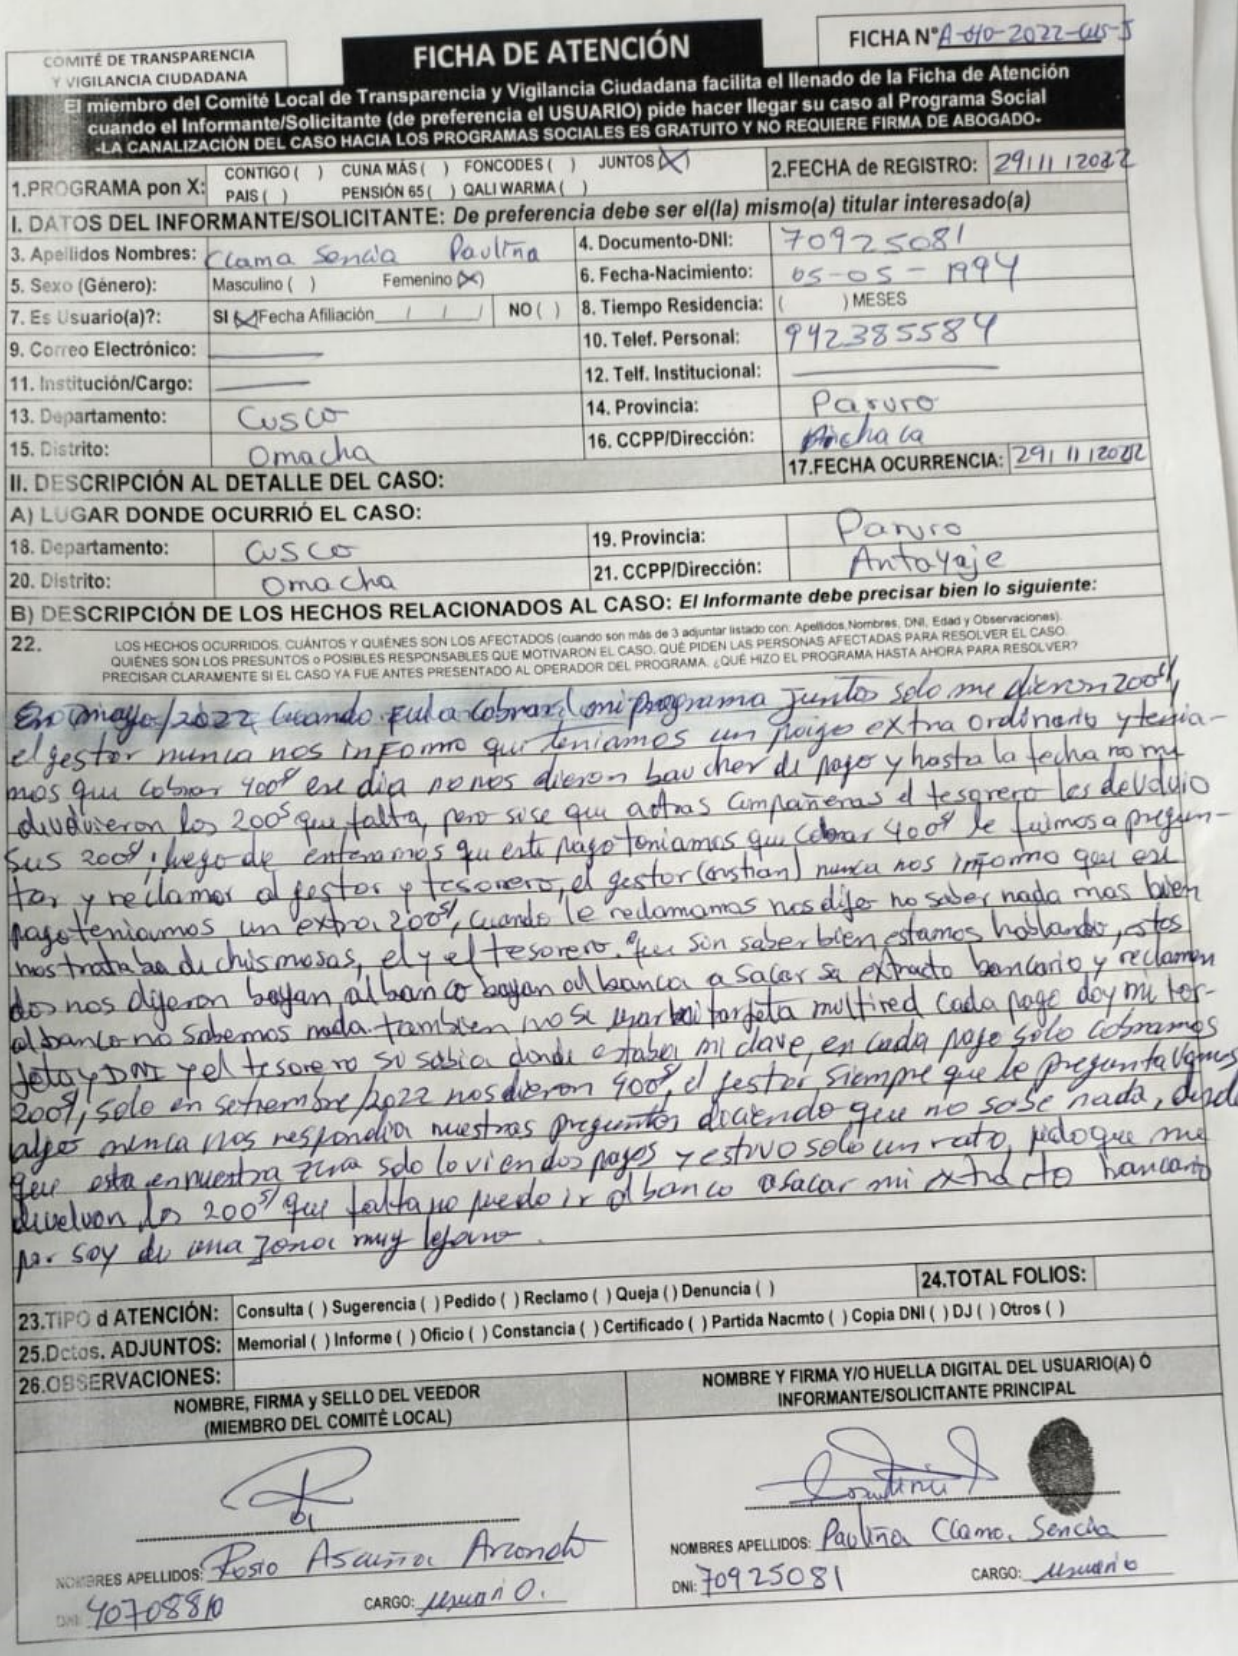 COMITÉ DE TRANSPARENCIA
Y VIGILANCIA CIUDADANA
FICHA DE ATENCIÓN
FICHA N° A-010-2022-CUS-J
El miembro del Comité Local de Transparencia y Vigilancia Ciudadana facilita el llenado de la Ficha de Atención
cuando el Informante/Solicitante (de preferencia el USUARIO) pide hacer llegar su caso al Programa Social
-LA CANALIZACIÓN DEL CASO HACIA LOS PROGRAMAS SOCIALES ES GRATUITO Y NO REQUIERE FIRMA DE ABOGADO-
1.PROGRAMA pon X: CONTIGO ( ) CUNA MÁS ( ) FONCODES ( ) JUNTOS (X)
PAIS ( ) PENSIÓN 65 ( ) QALI WARMA ( )
2.FECHA de REGISTRO: 29/11/2022
I. DATOS DEL INFORMANTE/SOLICITANTE: De preferencia debe ser el(la) mismo(a) titular interesado(a)
3. Apellidos Nombres: Clama Sencia Pauliña 4. Documento-DNI: 70925081
5. Sexo (Género): Masculino ( ) Femenino (X) 6. Fecha-Nacimiento: 05-05-1994
7. Es Usuario(a)?: SI (X) Fecha Afiliación / / / NO ( ) 8. Tiempo Residencia: ( ) MESES
9. Correo Electrónico: 10. Telef. Personal: 942385584
11. Institución/Cargo: 12. Telf. Institucional:
13. Departamento: Cusco 14. Provincia: Paruro
15. Distrito: Omacha 16. CCPP/Dirección:
II. DESCRIPCIÓN AL DETALLE DEL CASO: 17.FECHA OCURRENCIA: 29/11/2022
A) LUGAR DONDE OCURRIÓ EL CASO:
18. Departamento: Cusco 19. Provincia: Paruro
20. Distrito: Omacha 21. CCPP/Dirección: Antayaje
B) DESCRIPCIÓN DE LOS HECHOS RELACIONADOS AL CASO: El Informante debe precisar bien lo siguiente:
22. LOS HECHOS OCURRIDOS, CUÁNTOS Y QUIÉNES SON LOS AFECTADOS (cuando son más de 3 adjuntar listado con: Apellidos, Nombres, DNI, Edad y Observaciones).
QUIÉNES SON LOS PRESUNTOS o POSIBLES RESPONSABLES QUE MOTIVARON EL CASO. QUÉ PIDEN LAS PERSONAS AFECTADAS PARA RESOLVER EL CASO.
PRECISAR CLARAMENTE SI EL CASO YA FUE ANTES PRESENTADO AL OPERADOR DEL PROGRAMA. ¿QUÉ HIZO EL PROGRAMA HASTA AHORA PARA RESOLVER?
En mayo/2022 cuando fui a cobrar mi programa Juntos solo me dieron 200s/,
el gestor nunca nos informo que teniamos un paigo extra ordinario y tenia-
mos que cobrar 400s/ ese dia no nos dieron baucher de pago y hasta la fecha no me
divolvieron los 200s que falta, pero si se que a otras compañeras el tesorero les devolvio
sus 200s/, luego de enterarnos que este pago teniamos que cobrar 400s/ le fuimos a pregun-
tar y reclamar al gestor y tesorero, el gestor (cristian) nunca nos informo que ese
pago teniamos un extra 200s/, cuando le reclamamos nos dijo no saber nada mas bien
nos trataba de chismosas, el y el tesorero. que sin saber bien estamos hablando, estos
dos nos dijeron bayan al banco bayan al banco a sacar su extracto bancario y reclamen
al banco no sabemos nada. tambien no se usar mi tarjeta multired cada pago doy mi tar-
jeta y DNI y el tesorero si sabia donde estaba mi clave, en cada pago solo cobramos
200s/, solo en setiembre/2022 nos dieron 400s/, el gestor siempre que le preguntabamos
algo nunca nos respondia nuestras preguntas diciendo que no sabe nada, desde
que esta en nuestra zona solo lo vi en dos pagos y estivo solo un rato, pido que me
divuelvan los 200s/ que falta no puedo ir al banco a sacar mi extracto bancario
por soy de una zona muy lejano.
23.TIPO d ATENCIÓN: Consulta ( ) Sugerencia ( ) Pedido ( ) Reclamo ( ) Queja ( ) Denuncia ( ) 24.TOTAL FOLIOS:
25.Dctos. ADJUNTOS: Memorial ( ) Informe ( ) Oficio ( ) Constancia ( ) Certificado ( ) Partida Nacmto ( ) Copia DNI ( ) DJ ( ) Otros ( )
26.OBSERVACIONES:
NOMBRE, FIRMA y SELLO DEL VEEDOR
(MIEMBRO DEL COMITÉ LOCAL)
NOMBRE Y FIRMA Y/O HUELLA DIGITAL DEL USUARIO(A) Ó
INFORMANTE/SOLICITANTE PRINCIPAL
NOMBRES APELLIDOS: Rosio
DNI: 40708810 CARGO: Usuario.
NOMBRES APELLIDOS: Pauliña Clama Sencia
DNI: 70925081 CARGO: Usuario